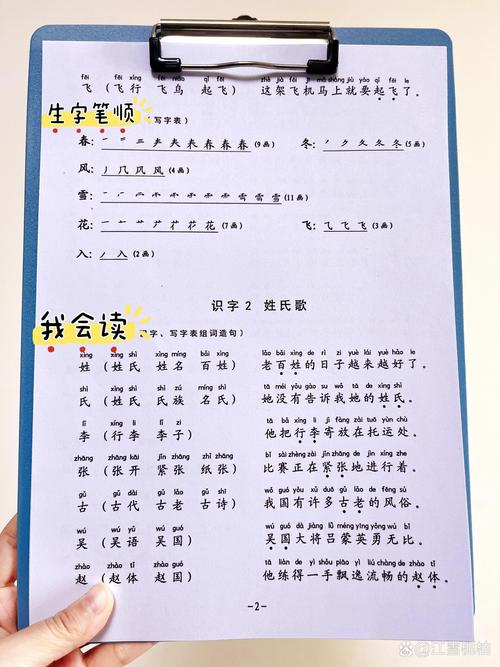 fēi fēi xíng fēi niǎo qǐ fēi zhè jià fēi jī mǎ shàng jiù yào qǐ fēi le
飞（飞行 飞鸟 起飞） 这架飞机马上就要起飞了。
生字笔顺 写字表）
春：一 二 三 夫 夫 表 春 春 春(9画) 冬：丿 ク 夂 冬 冬(5画)
风：丿 几 风 风(4画)
雪：雪 雪 雪(11画)
花：一 艹 花 花(7画) 飞：飞 飞(3画)
入：丿 入(2画)
识字2 姓氏歌
我会读 字、写字表组词造句）
xìng xìng shì xìng míng bǎi xìng lǎo bǎi xìng de rì zi yuè lái yuè hǎo le
姓（姓氏 姓名 百姓） 老百姓的日子越来越好了。
shì xìng shì shì zú míng shì tā méi yǒu gào su wǒ tā de xìng shì
氏（姓氏 氏族 名氏） 她没有告诉我她的姓氏。
lǐ xíng li lǐ zi tā bǎ xíng li jì fàng zài tuō yùn chù
李（行李 李子） 他把行李寄放在托运处。
zhāng zhāng kāi jǐn zhāng zhǐ zhāng bǐ sài zhèng zài jǐn zhāng de jìn xíng zhe
张（张开 紧张 纸张） 比赛正在紧张地进行着。
gǔ gǔ dài gǔ lǎo gǔ shī wǒ guó yǒu xǔ duō gǔ lǎo de fēng sú
古（古代 古老 古诗） 我国有许多古老的风俗。
wú wú yǔ wú guó wú guó dà jiàng lǚ méng yīng yǒng wú bǐ
吴（吴语 吴国） 吴国大将吕蒙英勇无比。
zhào zhào tǐ zhào guó tā liàn de yì shǒu piāo yì liú chàng de zhào tǐ
赵（赵体 赵国） 他练得一手飘逸流畅的赵体。
-2-